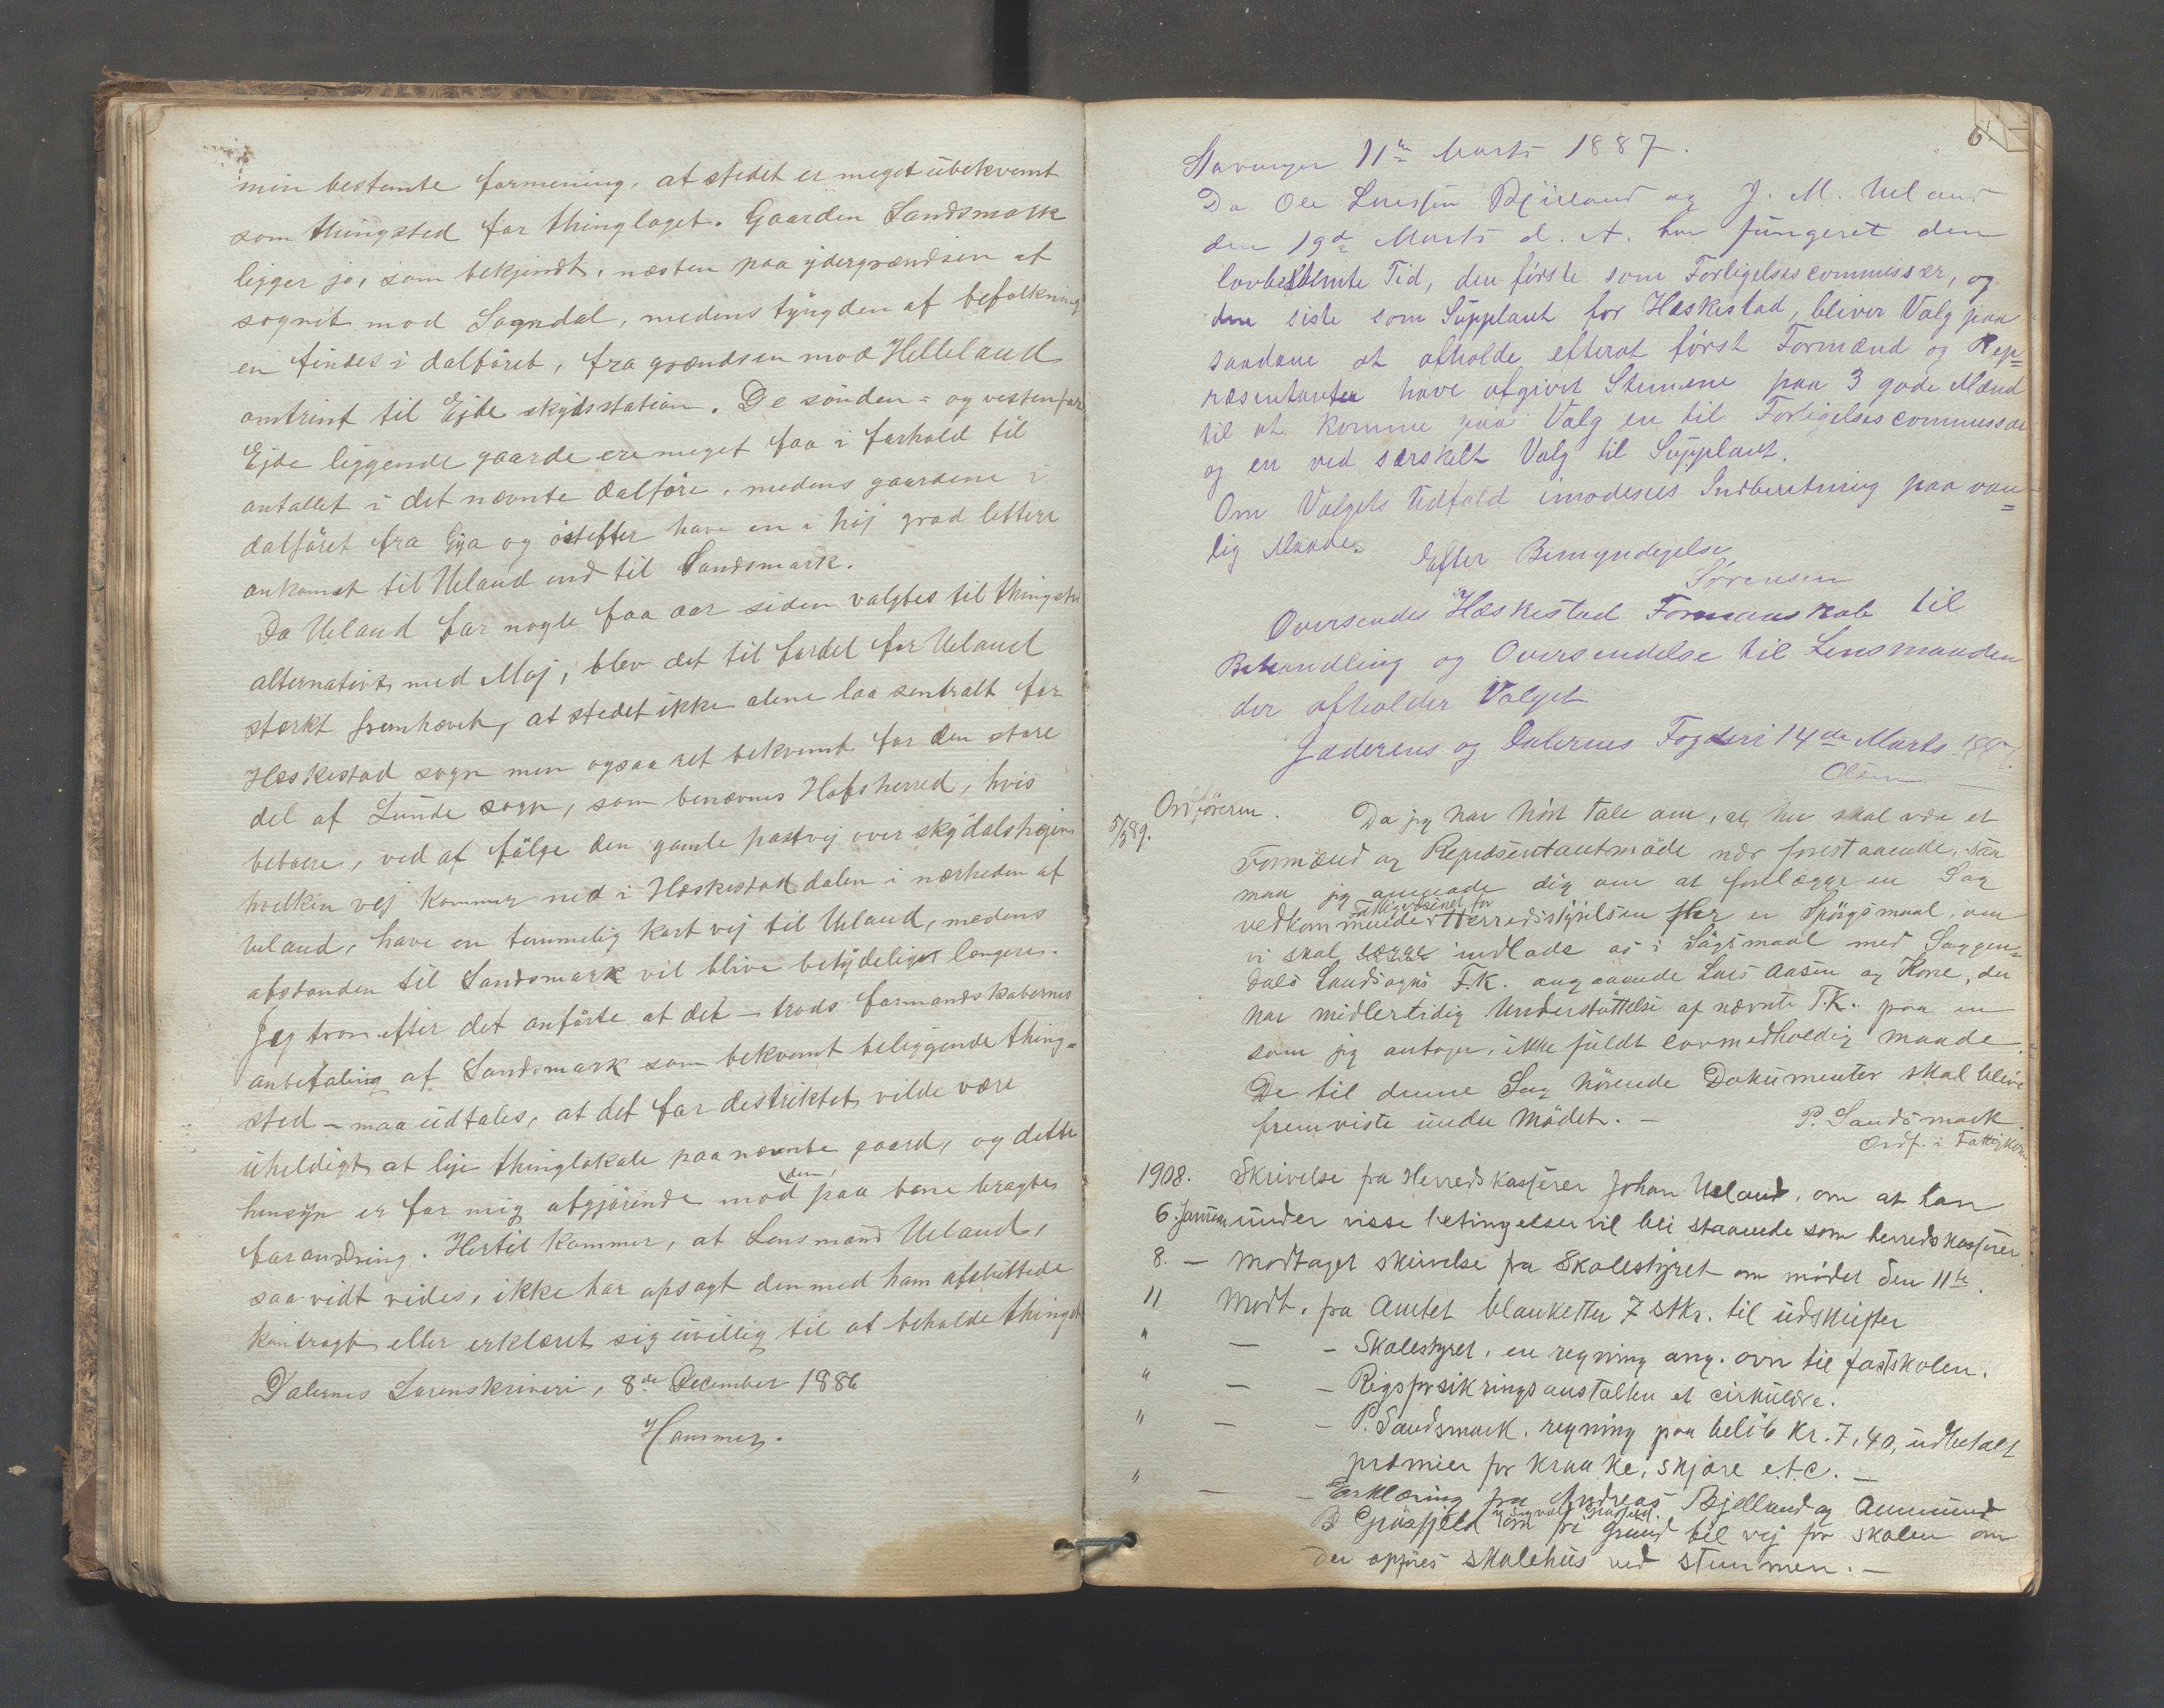 min bestemte formening, at stedet er meget ubekvemt
som thingsted for thinglaget. Gaarden Sandsmark
ligger jo, som bekjendt, næsten paa ydergrændsen af
sognet mod Sogndal, medens tyngden af befolkning
en findes i dalføret, fra grændsen mod Helleland
omtrint til Ejde skydsstation. De sønden- og vestenfor
Ejde liggende gaarde ere meget faa i forhold til
antallet i det nævnte dalføre, medens gaardene i
dalføret fra Eja og østefter have en i høj grad lettere
ankomst til Ueland end til Sandsmark.
Da Ueland for nogle faa aar siden valgtes til thingsted
alternativt med Moj, blev det til fordel for Ueland
stærkt fremhævet, at stedet ikke alene laa sentralt for
Heskestad sogn men ogsaa ret bekvemt for den store
del af Lunde sogn, som benævnes Hofsherred, hvis
beboere, ved at følge den gamle postvej over skydalshejen
hvilken vej kommer ned i Heskestad dalen i nærheden af
Ueland, have en temmelig kort vej til Ueland, medens
afstanden til Sandsmark vil blive betydeligt længere.
Jeg tror efter det anførte at det – trods formandskabernes
anbefaling af Sandsmark som bekvemt beliggende thing-
sted – maa udtales, at det for destriktet vilde være
uheldigt at leje thinglokale paa nævnte gaard, og dette
hensyn er for mig afgjørende mod den, paa bane bragte
forandring. Hertil kommer, at Lensmand Ueland,
saavidt vides, ikke har opsagt den med ham afsluttede
kontragt eller erklæret sig uvillig til at beholde thinget
Dalernes Sorenskriveri, 8de December 1886
Hammer.
61
Stavanger 11te Marts 1887.
Da Ole Larsen Bjelland og J. M. Ueland
den 19de Marts d. A. har fungeret den
lovbestemte Tid, den første som Forligelsescommissær, og
den siste som Supplant for Heskestad, bliver Valg paa
saadane at afholde efterat først Formænd og Rep-
ræsentanter have afgivet Stemme paa 3 gode Mænd
til at komme paa Valg en til Forligelsescommissær
og en ved særskilt Valg til Supplant.
Om Valgets Udfald imødesees Indberetning paa van-
lig Maade.
Efter Bemyndigelse
Sørensen
Oversendes Heskestad Formanskab til
Behandling og Oversendelse til Lensmanden
der afholder Valget
Jæderens og Dalernes Fogderi 14de Marts 1887.
Olsen
Ordføreren. Da jeg har hørt tale om, at her skal være et
5/3 89.
Formænd og Repræsentantmøde nær forestaaende, saa
maa jeg anmode dig om at forlægge en Sag
fattigvæsenet for
vedkommende Herredsstyrelsen Her er Spørgsmaal, om
vi skal indlade os i Søgsmaal med Soggen-
dals Landsogns F.K. angaaende Lars Aasen og Kone, der
har midlertidig Understøttelse af nævnte F.K. paa en
som jeg antager, ikke fuldt lovmedholdig maade.
De til denne Sag hørende Dokumenter skal blive
fremviste under Mødet. –
P. Sandsmark
Ordf. i Fattigkom.
1908. Skrivelse fra Herredskasserer Johan Ueland, om at han
6. Januar under visse betingelser vil bli staaende som herredskasserer
8. – Modtaget skrivelse fra Skolestyret om mødet den 11te.
11 Modt. fra Amtet blanketter 7 stkr. til udskrifter
" – – Skolestyret, en regning ang. ovn til fastskolen.
" – – Rigsforsikringsanstalten et cirkulære.
" – – P. Sandsmark, regning paa beløb Kr. 7,40, udbetalt
præmier for kraake, skjøre e.t.c. –
" – – Erklæring fra Andreas Bjelland og Ammund
B Gråsfjeld om fri grund til vej for skolen om
der opføres skolehus ved stemmen. –